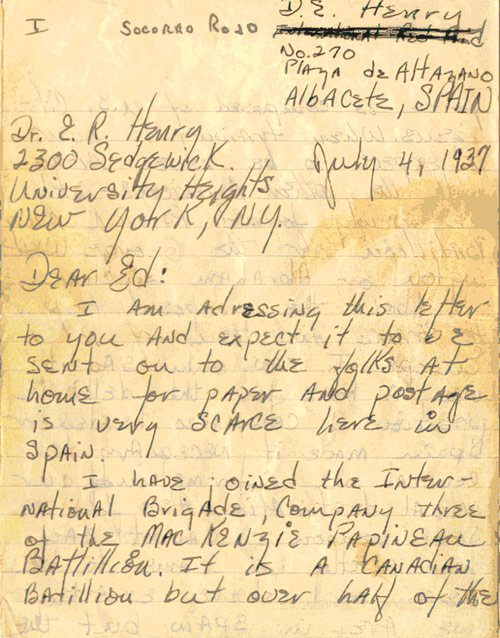 I    SOCORRO ROJO    D. E. Henry
International Red Aid
No. 270
Plaza de Altazano
Albacete, SPAIN
Dr. E. R. Henry
2300 Sedgewick.    July 4, 1937
University Heights
New York, N.Y.
Dear Ed:
I am adressing this letter
to you and expect it to be
sent on to the folks at
home for paper and postage
is verry scarce here in
Spain.
I have joined the Inter-
national Brigade, Company three
of the MacKenzie Papineau
Batillion. It is a Canadian
Batillion but over half of the